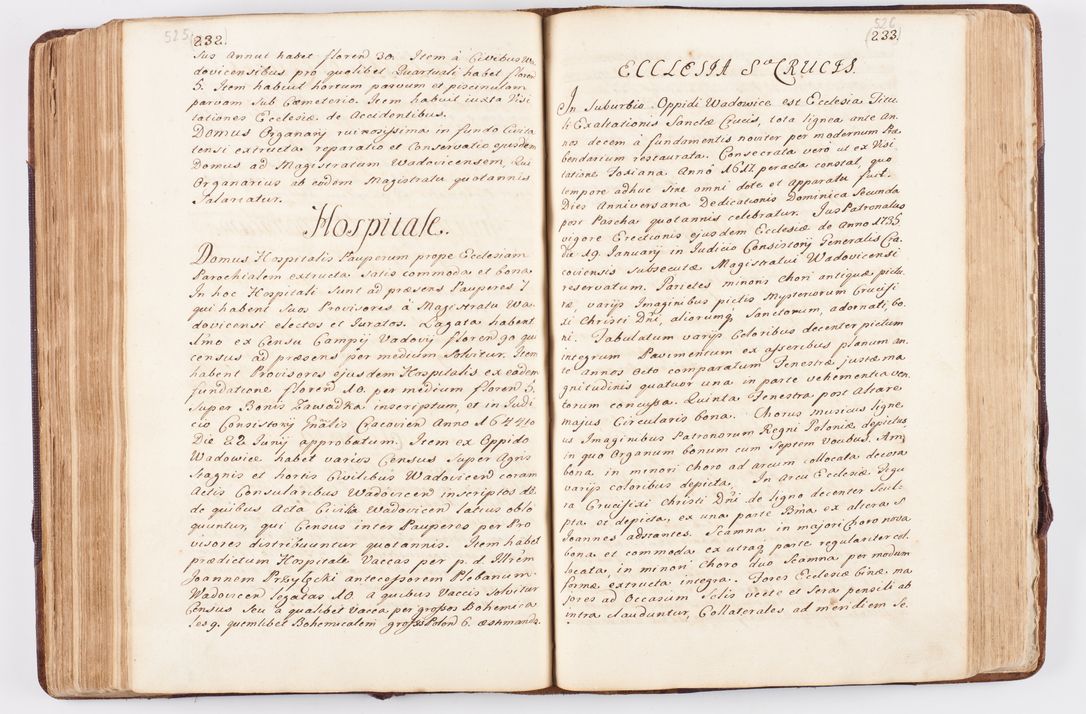 525 232.
sus annui habet floren 30. Item à Civibus Wa
dovicensibus pro quolibet Quartuali habet floren
5. Item habuit hortum parvum et piscinulam
parvam sub Cæmeterio. Item habuit iuxta Visi
tationes Ecclesiæ de Accidentibus.
Domus Organarij ruinosissima in fundo Civita
tensi extructa reparatio et Conservatio ejusdem
Domus ad Magistratum Wadovicensem, Qui
Organarius ab eodem Magistratu quotannis
Salariatur.
Hospitale.
Domus Hospitalis Pauperum prope Ecclesiam
Parochialem extructa satis commoda et bona.
In hoc Hospitali sunt ad præsens Pauperes 7
qui habent suos Provisores à Magistratu Wa-
dovicensi electos et Juratos. Legata habent
Imo ex Censu Campij Vadovij floren 90 qui
census ad præsens per medium solvitur. Item
habent Provisores ejusdem Hospitalis ex eadem
fundatione floren 10. per medium floren 5.
super Bonis Zawadka inscriptum, et in Judi
cio Consistorij Gnãlis Cracovien Anno 1644to
Die 22 Junij approbatum. Item ex Oppido
Wadovice habet varios Census super Agris
stagnis et hortis Civilibus Wadovicen coram
Actis Consularibus Wadovicen inscriptos
de quibus Acta Civilia Wadovicen latius oblo
quuntur, qui Census inter Pauperes per Pro
visores distribuuntur quotannis. Item habet
prædictum Hospitale Vaccas per p.d. Illrem
Joannem Przyłęcki antecessorem Plebanum
Wadovicen legatas 10. a quibus Vaccis solvitur
Census seu a qualibet Vacca per grossos Bohemica
les 9. quemlibet Bohemicalem grossis Polon 6. æstimando
526 233.
ECCLESIA Stæ CRUCIS.
In Suburbio Oppidi Wadowice est Ecclesia Titu
li Exaltationis Sanctæ Crucis, tota lignea ante An-
nos decem à fundamentis noviter per modernum Præ
bendarium restaurata. Consecrata verò ut ex Visi
tatione Foxiana. Annô 1617. peracta constat, quo
tempore adhuc sine omni dote et apparatu fuit.
Dies Anniversaria Dedicationis Dominica Secunda
post Pascha quotannis celebratur. Jus Patronatus
vigore Erectionis ejusdem Ecclesiæ de Anno 1735
die 19. Januarij in Judicio Consistorij Generalis Cra
coviensis subsecutæ Magistratui Wadovicensi
reservatum. Parietes minoris Chori antiquæ pictu
ræ, varijs Imaginibus pictis Mysteriorum Crucifi
xi Christi Dñi, aliorumq Sanctorum, adornati, bo
ni. Tabulatum varijs Coloribus decenter pictum
integrum Pavimentum ex asseribus planum an
te annos octo comparatum Fenestræ justæ ma
gnitudinis quatuor una in parte vehementia ven
torum concussa. Quinta Fenestra post Altare
majus Circularis bona. Chorus musicus ligne
us Imaginibus Patronorum Regni Poloniæ depictus
in quo Organum bonum cum septem vocibus.
bona in minori Choro ad arcum collocata decora
varijs coloribus depicta. In Arcu Ecclesiæ Figu
ra Crucifixi Christi Dñi de ligno decenter scul
pta, et depicta, ex una parte Bma ex altera S
Joannes adstantes. Scamna in majori Choro nova
bona et commoda ex utraq parte regulariter col
locata, in minori Choro duo Scamna per modum
formæ extructa integra. Fores Ecclesiæ binæ ma
jores ad Occasum Solis vecte et sera pensili ab
intra clauduntur, Collaterales ad meridiem Se.